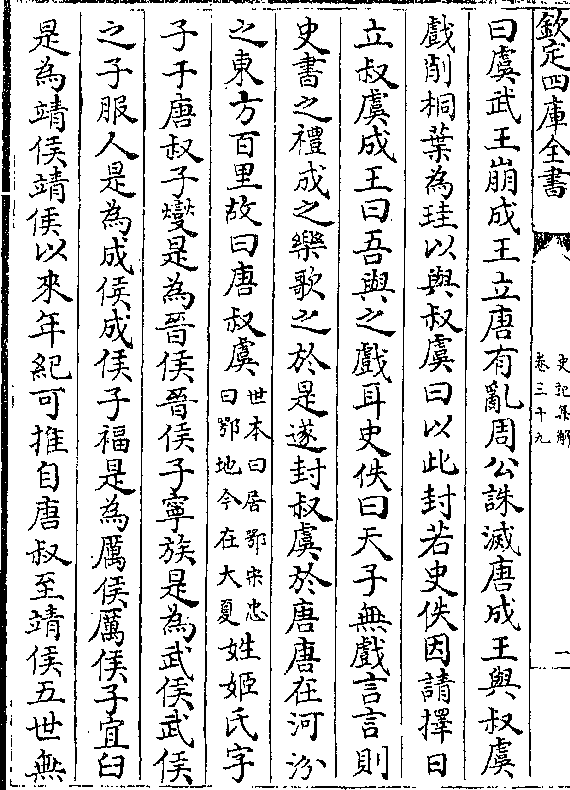 欽定四庫全書
史記集解
卷三十九
一
曰虞武王崩成王立唐有亂周公誅滅唐成王與叔虞
戲削桐葉為珪以與叔虞曰以此封若史佚因請擇日
立叔虞成王曰吾與之戲耳史佚曰天子無戲言言則
史書之禮成之樂歌之於是遂封叔虞於唐唐在河汾
之東方百里故曰唐叔虞世本曰居鄂宋忠曰鄂地今在大夏姓姬氏字
子于唐叔子燮是為晉侯晉侯子寧族是為武侯武侯
之子服人是為成侯成侯子福是為厲侯厲侯子宜臼
是為靖侯靖侯以來年紀可推自唐叔至靖侯五世無